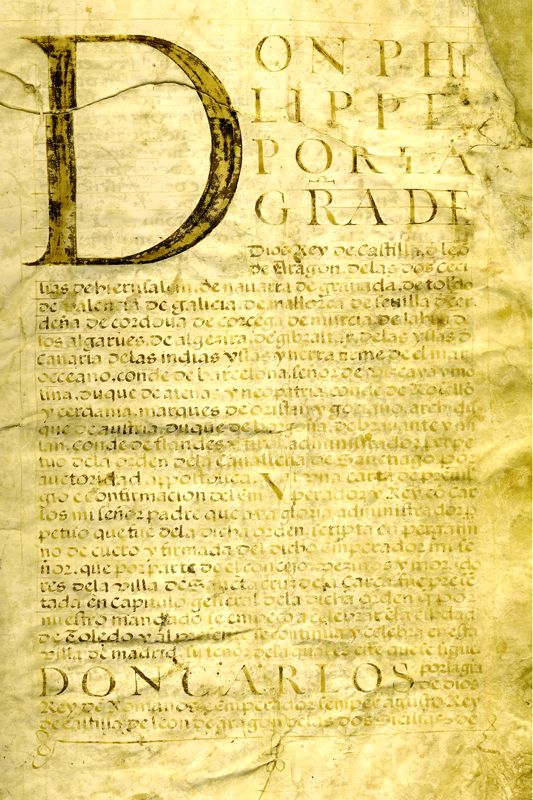 DON PHI
LIPPE
POR LA
GRA DE
Dios Rey de Castilla, d leō
de Aragon, de las dos Ceci
lias de hierusalem, de navarra de granada, de toledo
de valencia de galicia, de mallorca de sevilla d cer
deña de cordova de corcega de murcia, de Jahen d
los algarues, de algezira, de gibraltar, de las yslas d
canaria de las indias yslas y tierra firme de el mar
occeano, conde de barcelona, señor de Vizcaya y mo
lina, duque de atenas y neopatria, conde de Rosellō
y cerdania, marques de oristan y gociano, archidu
que de austria, duque de borgoña, de bravante y mi
lan, conde de flandes y tirol administrador perpe
tuo de la orden de la Cavalleria de Santiago por
auctoridad appostolica, Vi una carta de previle
gio e confirmacion del emperador y Rey dō car
los mi señor padre que aya gloria administrador p
petuo que fue de la dicha orden, scripta en pergami
no de cuero y firmada del dicho emperador mi se
ñor, que por parte de el concejo, vezinos y morado
res de la villa de Sancta cruz de la Çarça fue presē
tada en Capitulo general de la dicha orden q por
nuestro mandado se empeço a celebrar en la cibdad
de Toledo y al presente se continua y celebra en esta
villa de madrid, su tenor de la qual es este que se sigue
DON CARLOS por la gra
de dios
Rey de Romanos e emperador semper augusto Rey
de Castilla de leon de aragon de las dos Sicilias de